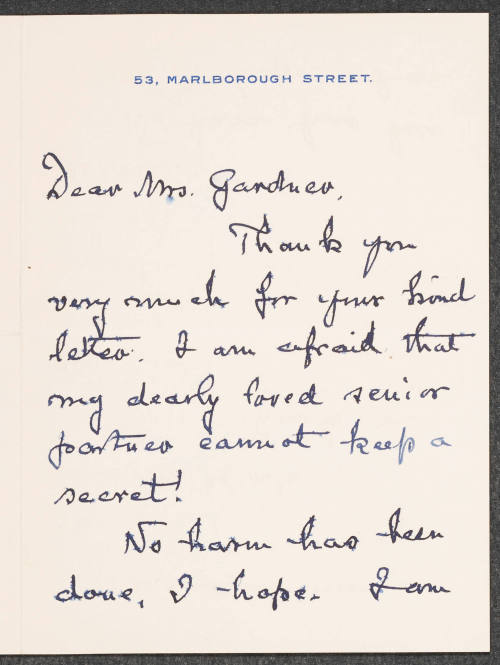 53, MARLBOROUGH STREET.
Dear Mrs. Gardner,
Thank you
very much for your kind
letter. I am afraid that
my dearly loved senior
partner cannot keep a
secret!
No harm has been
done, I hope. I am